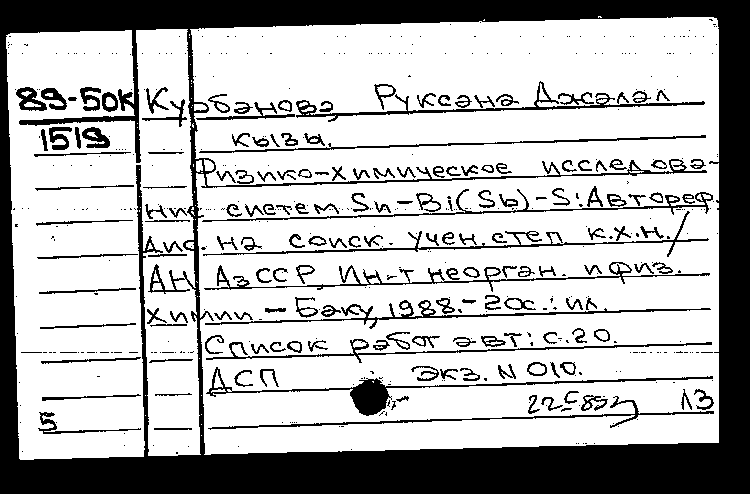 89-50к Курбанова, Руксана Джалал
1519 кызы.
Физико-химическое исследова-
ние систем Sn-Bi(Sb)-S: Автореф.
дис. на соиск. учен. степ. к.х.н. /
АН АзССР, Ин-т неорган. и физ.
химии. - Баку, 1988. - 20с.: ил.
Список работ авт: с.20.
ДСП Экз. N 010.
5 13